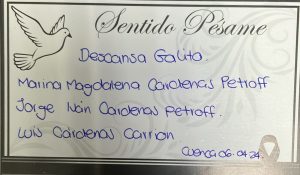 Sentido Pésame
Descansa Galito.
Marina Magdalena Cárdenas Petroff
Jorge Iván Cárdenas Petroff.
Luis Cárdenas Carrión
Cuenca 06-04-24